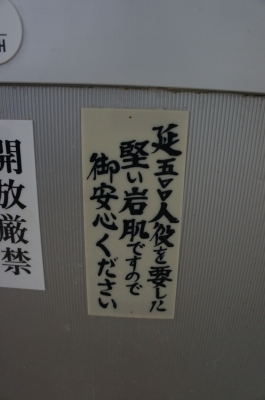 延五〇〇人役を要した
堅い岩肌ですので
御安心ください
開放厳禁